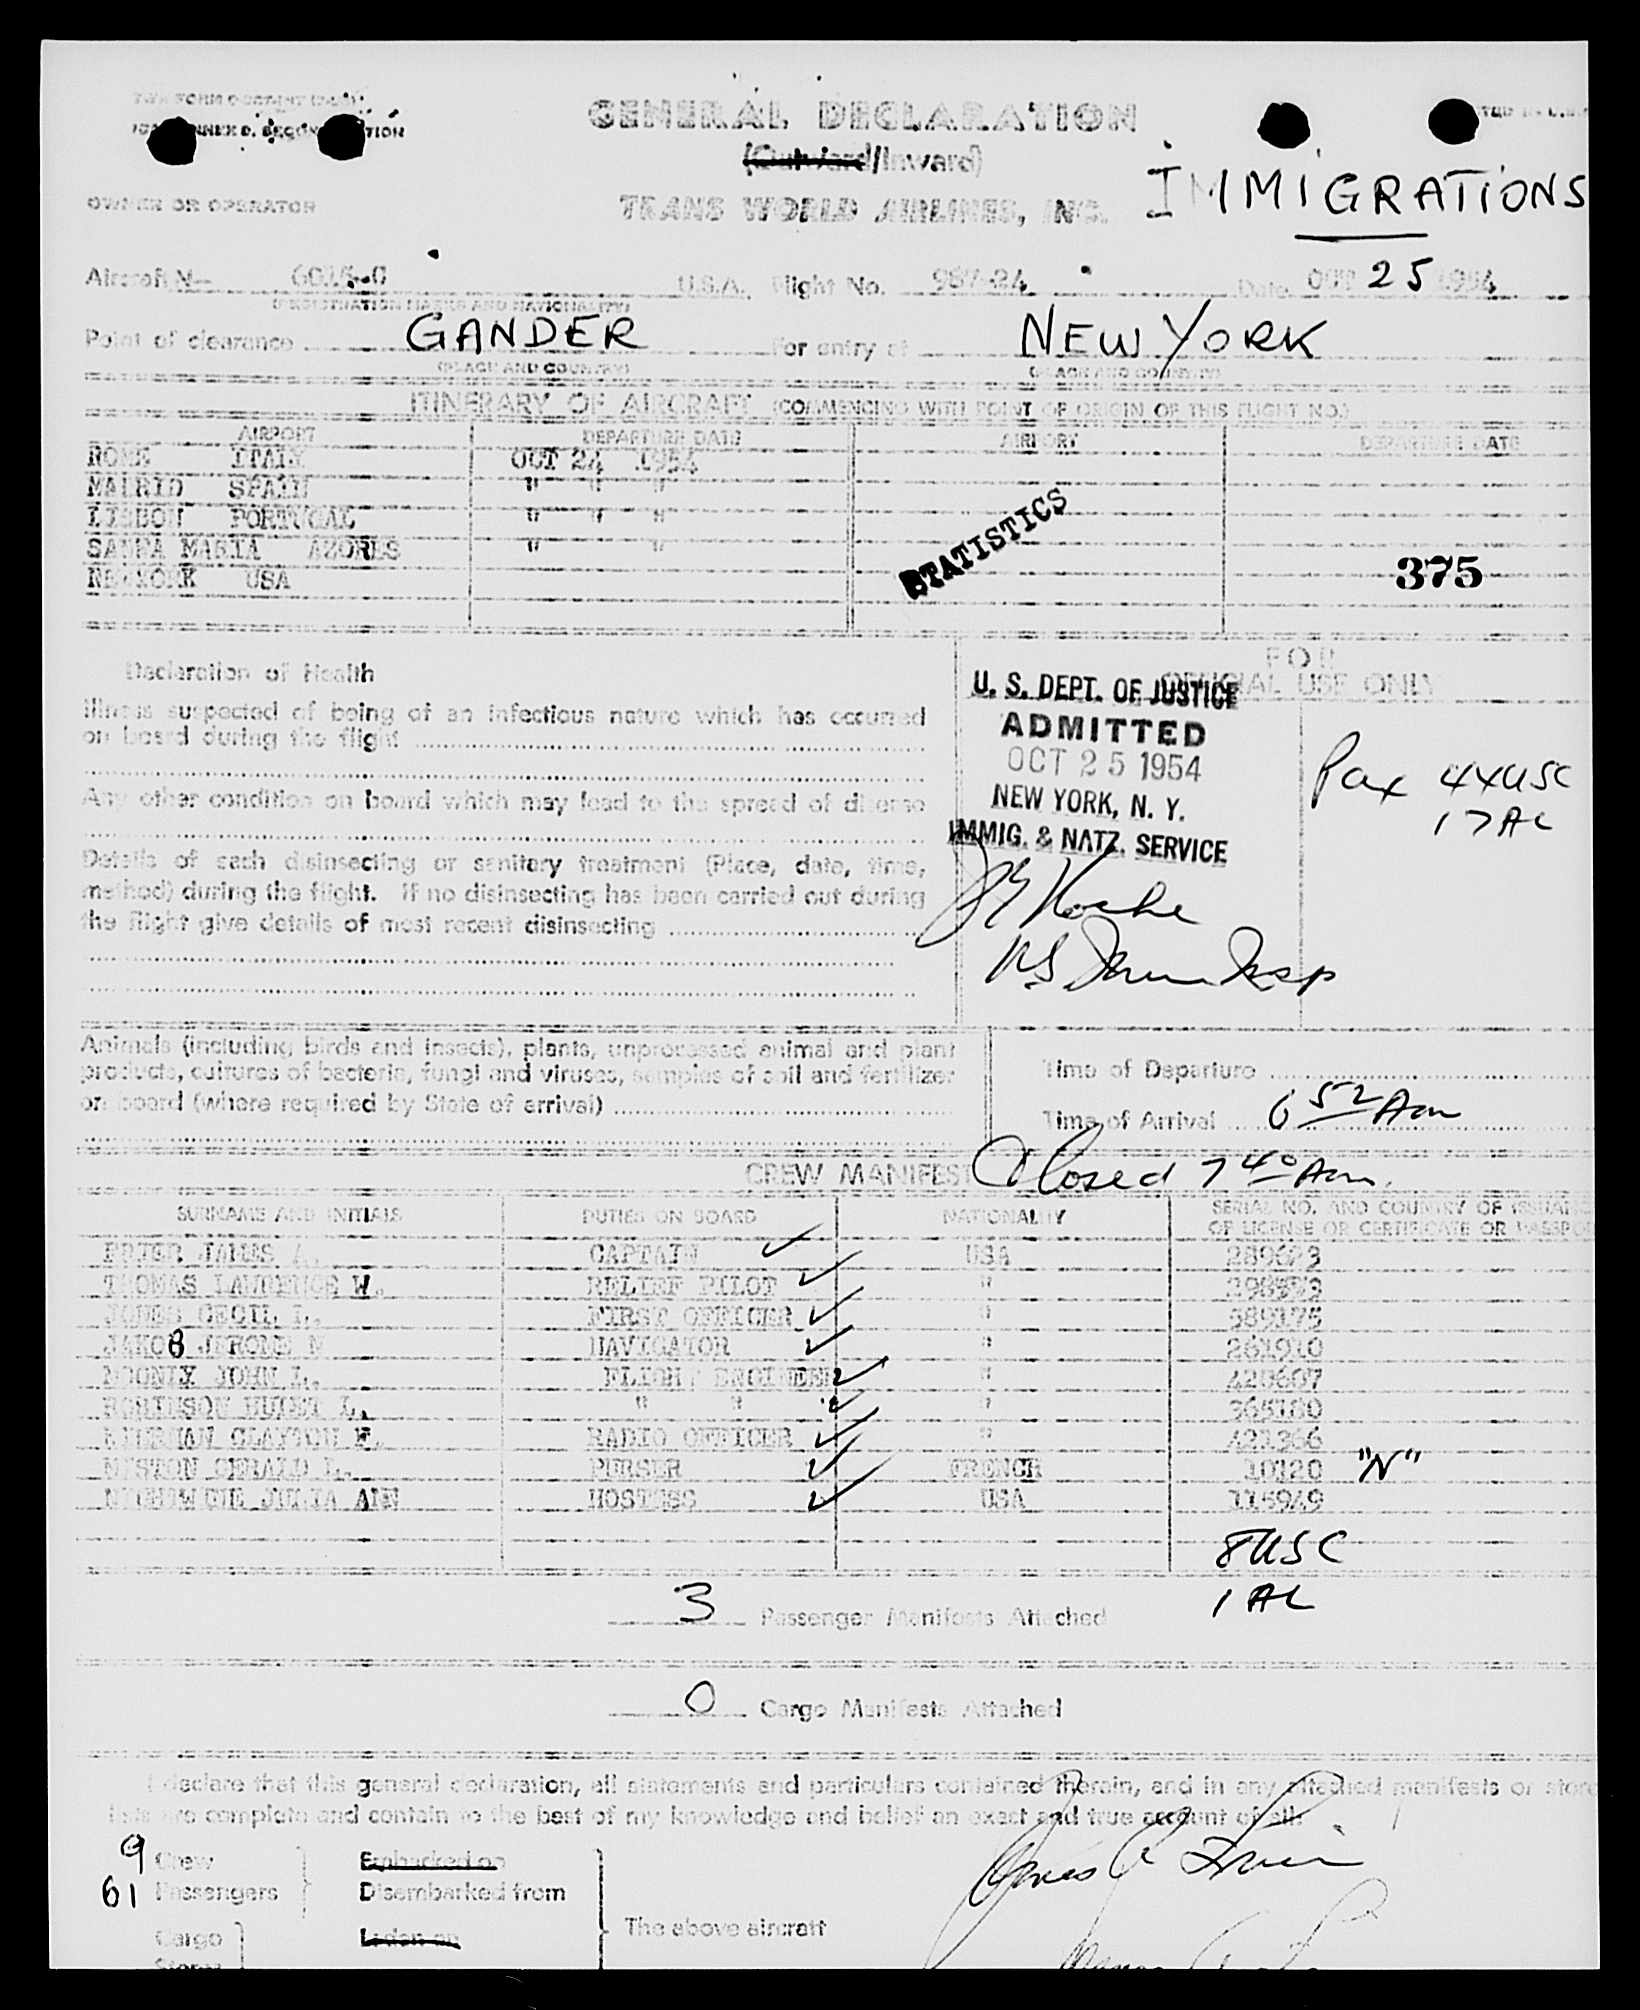 GENERAL DECLARATION
(Outward/Inward)
IMMIGRATIONS
OWNER OR OPERATOR TRANS WORLD AIRLINES, INC.
Aircraft N- U.S.A. Flight No. 987-24 Date OCT 25 1954
(REGISTRATION MARKS AND NATIONALITY)
Point of clearance GANDER For entry at NEW YORK
(PLACE AND COUNTRY) (PLACE AND COUNTRY)
ITINERARY OF AIRCRAFT (COMMENCING WITH POINT OF ORIGIN OF THIS FLIGHT NO.)
AIRPORT DEPARTURE DATE AIRPORT DEPARTURE DATE
ROME ITALY OCT 24 1954
MADRID SPAIN " " "
LISBON PORTUGAL " " "
SANTA MARIA AZORES " "
NEW YORK USA
STATISTICS
375
Declaration of Health
Illness suspected of being of an infectious nature which has occurred
on board during the flight
Any other condition on board which may lead to the spread of disease
Details of each disinsecting or sanitary treatment (Place, date, time,
method) during the flight. If no disinsecting has been carried out during
the flight give details of most recent disinsecting
FOR
OFFICIAL USE ONLY
U. S. DEPT. OF JUSTICE
ADMITTED
OCT 25 1954
NEW YORK, N. Y.
IMMIG. & NATZ. SERVICE
Pax 44 USC
17 AL
Animals (including birds and insects), plants, unprocessed animal and plant
products, cultures of bacteria, fungi and viruses, samples of soil and fertilizer
on board (where required by State of arrival)
Time of Departure
Time of Arrival 6 52 Am
Closed 7 40 Am.
CREW MANIFEST
SURNAME AND INITIALS DUTIES ON BOARD NATIONALITY SERIAL NO. AND COUNTRY OF ISSUANCE
OF LICENSE OR CERTIFICATE OR PASSPO
JAMES A. CAPTAIN USA
THOMAS LAWRENCE W. RELIEF PILOT "
JONES CECIL L. FIRST OFFICER " 389175
JAKOB JEROME N NAVIGATOR " 261910
JOHN L. FLIGHT ENGINEER "
ROBINSON L. " " 2 " 365180
CLAYTON F. RADIO OFFICER " 421366
GERALD L. PURSER FRENCH 10120 "N"
JULIA ANN HOSTESS USA 115949
8 USC
1 AL
3 Passenger Manifests Attached
0 Cargo Manifests Attached
I declare that this general declaration, all statements and particulars contained therein, and in any attached manifests or store
lists are complete and contain to the best of my knowledge and belief an exact and true account of all:
9 Crew Embarked on
61 Passengers Disembarked from
Cargo Laden on The above aircraft
Stores